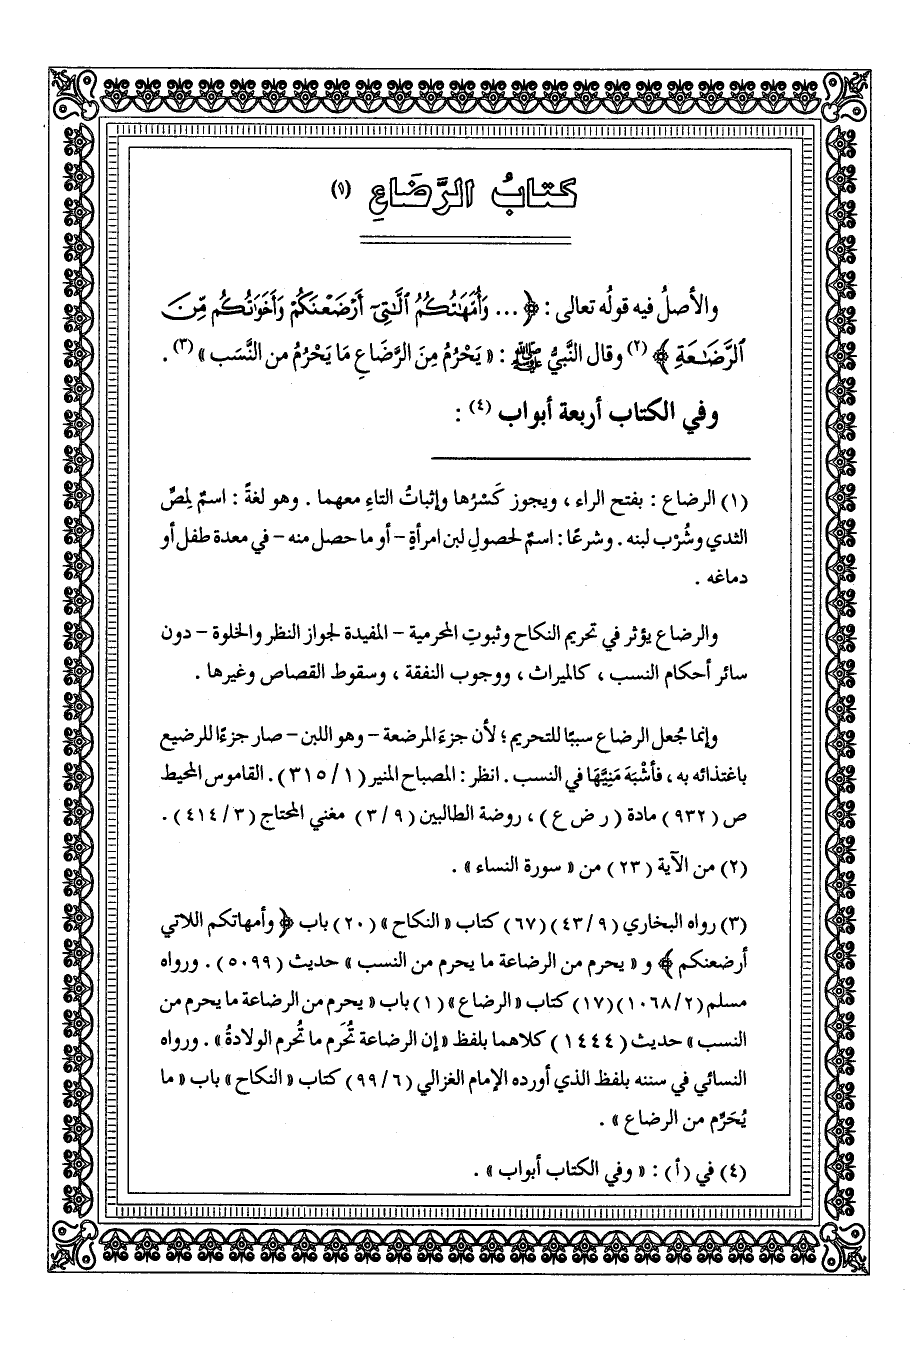 كتابُ الرَّضَاعِ (١)
والأصلُ فيه قولُه تعالى : ﴿ ... وَأُمَّهَٰتُكُمُ ٱلَّٰتِىٓ أَرْضَعْنَكُمْ وَأَخَوَٰتُكُم مِّنَ
ٱلرَّضَٰعَةِ ﴾ (٢) وقال النَّبيُّ ﷺ : « يَحْرُمُ مِنَ الرَّضَاعِ مَا يَحْرُمُ من النَّسَب » (٣) .
وفي الكتاب أربعة أبواب (٤) :
(١) الرضاع : بفتح الراء ، ويجوز كَسْرُها وإثباتُ التاءِ معهما . وهو لغةً : اسمٌ لمصِّ
الثدي وشُرْب لبنه . وشرعًا : اسمٌ لحصولِ لبن امرأةٍ – أو ما حصل منه – في معدة طفل أو
دماغه .
والرضاع يؤثر في تحريم النكاح وثبوتِ المحرمية – المفيدة لجواز النظر والخلوة – دون
سائر أحكام النسب ، كالميراث ، ووجوب النفقة ، وسقوط القصاص وغيرها .
وإنما جُعل الرضاع سببًا للتحريم ؛ لأن جزءَ المرضعة – وهو اللبن – صار جزءًا للرضيع
باغتذائه به ، فأشْبَهَ مَنِيَّهَا في النسب . انظر : المصباح المنير ( ١ / ٣١٥ ) . القاموس المحيط
ص ( ٩٣٢ ) مادة ( ر ض ع ) ، روضة الطالبين ( ٩ / ٣ ) مغني المحتاج ( ٣ / ٤١٤ ) .
(٢) من الآية ( ٢٣ ) من « سورة النساء » .
(٣) رواه البخاري ( ٩ / ٤٣ ) ( ٦٧ ) كتاب « النكاح » ( ٢٠ ) باب ﴿ وأمهاتكم اللاتي
أرضعنكم ﴾ و « يحرم من الرضاعة ما يحرم من النسب » حديث ( ٥٠٩٩ ) . ورواه
مسلم ( ٢ / ١٠٦٨ ) ( ١٧ ) كتاب « الرضاع » ( ١ ) باب « يحرم من الرضاعة ما يحرم من
النسب » حديث ( ١٤٤٤ ) كلاهما بلفظ « إن الرضاعة تُحَرم ما تُحرم الولادةُ » . ورواه
النسائي في سننه بلفظ الذي أورده الإمام الغزالي ( ٦ / ٩٩ ) كتاب « النكاح » باب « ما
يُحَرَّم من الرضاع » .
(٤) في ( أ ) : « وفي الكتاب أبواب » .